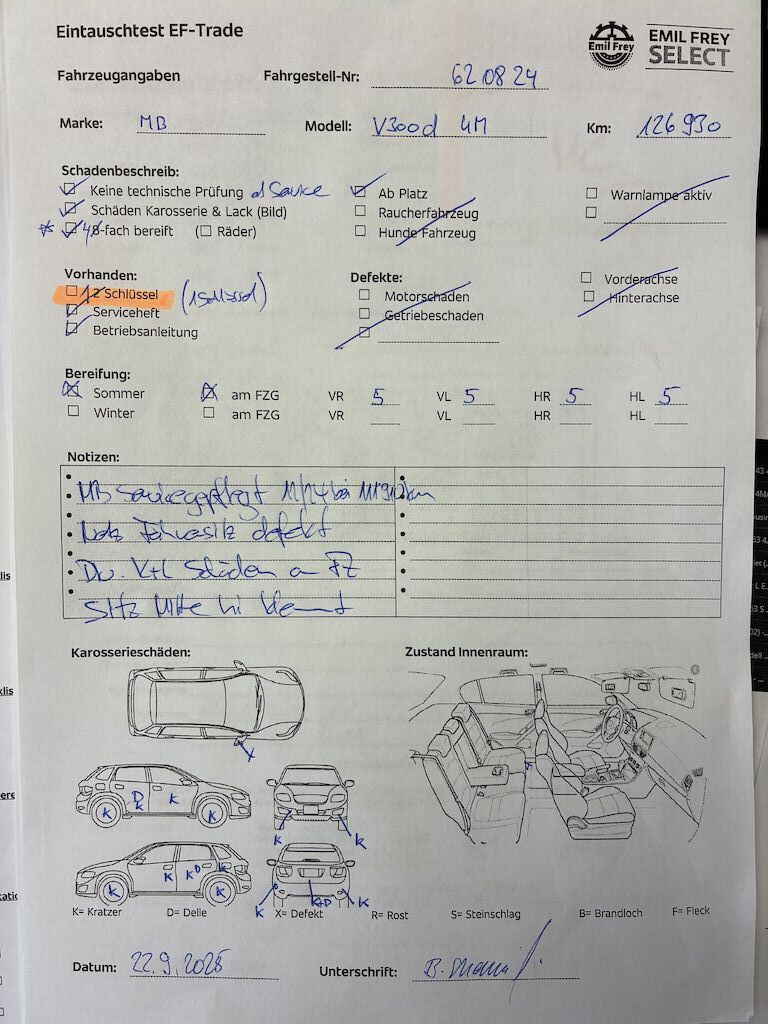 Eintauschtest EF-Trade
Emil Frey
EMIL FREY
SELECT
Fahrzeugangaben Fahrgestell-Nr: 620824
Marke: MB Modell: V300d 4M Km: 126 930
Schadenbeschreib:
Keine technische Prüfung Ab Platz Warnlampe aktiv
Schäden Karosserie & Lack (Bild) Raucherfahrzeug
4/8-fach bereift ( Räder) Hunde Fahrzeug
Vorhanden: Defekte: Vorderachse
1 2 Schlüssel (1 Schlüssel) Motorschaden Hinterachse
Serviceheft Getriebeschaden
Betriebsanleitung
Bereifung:
Sommer am FZG VR 5 VL 5 HR 5 HL 5
Winter am FZG VR VL HR HL
Notizen:
MB Servicegepflegt 11/24 bei
defekt
Div. K+L Schäden am FZ
Sitz Mitte hi klemmt
Karosserieschäden: Zustand Innenraum:
X
D
K K
K K
K K
K K D K
K K
K K+D K
K= Kratzer D= Delle X= Defekt R= Rost S= Steinschlag B= Brandloch F= Fleck
Datum: 22.9.2025 Unterschrift: